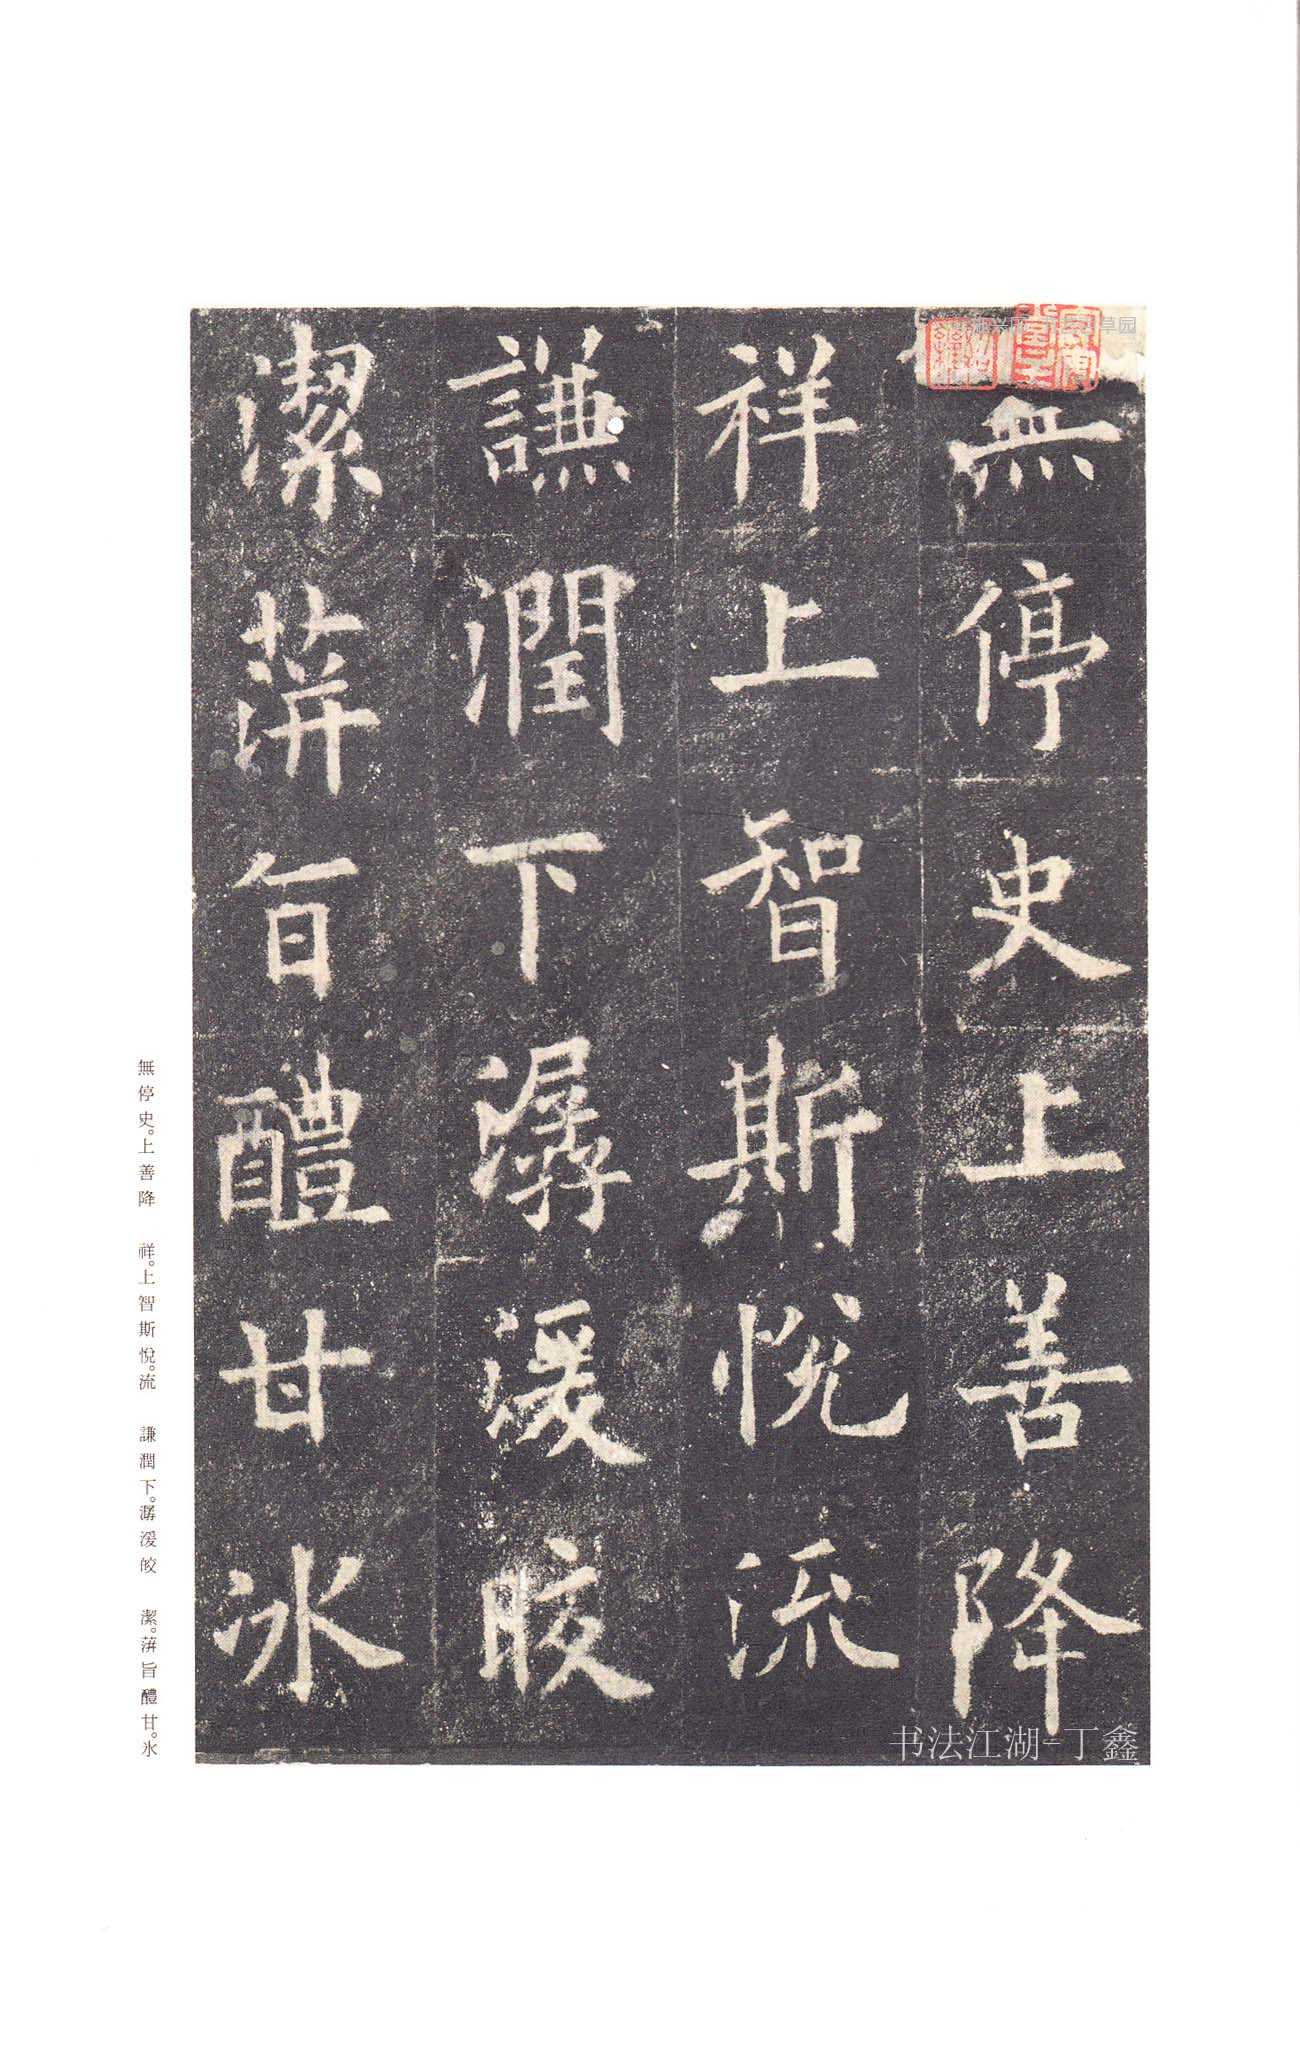 無停史上善降
祥上智斯悦流
謙潤下潺湲皎
潔蓱旨醴甘冰
無停史。上善降　祥。上智斯悅。流　謙潤下。潺湲皎　潔。蓱旨醴甘。冰
书法江湖-丁鑫